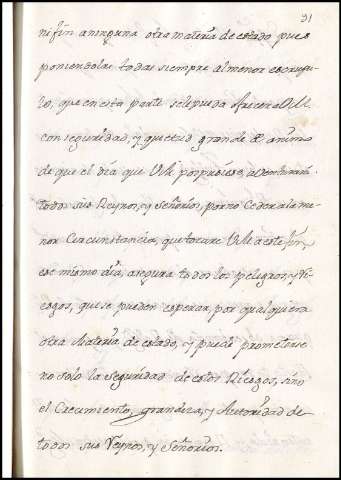 31
ni fin aninguna otra materia de estado pues
poniendolas todas siempre al menor escrupu-
lo, que en esta parte sele pueda ofrecer a VM.
con seguridad, y quietud grande de animo
de que el dia que VM. pospusiere, aventurara
todos sus Reynos, y Señorios, por no Ceder a la me
nor Circunstancia, que tocare VM. a este fin,
ese mismo dia, asegura todos los peligros, y Ri-
esgos, que se pueden esperar, por qualquiera
otra Materia de estado, y puede prometerse
no solo la seguridad de estos Riesgos, sino
el Crecimiento, grandeza, y Autoridad de
todos sus Reynos, y Señorios.